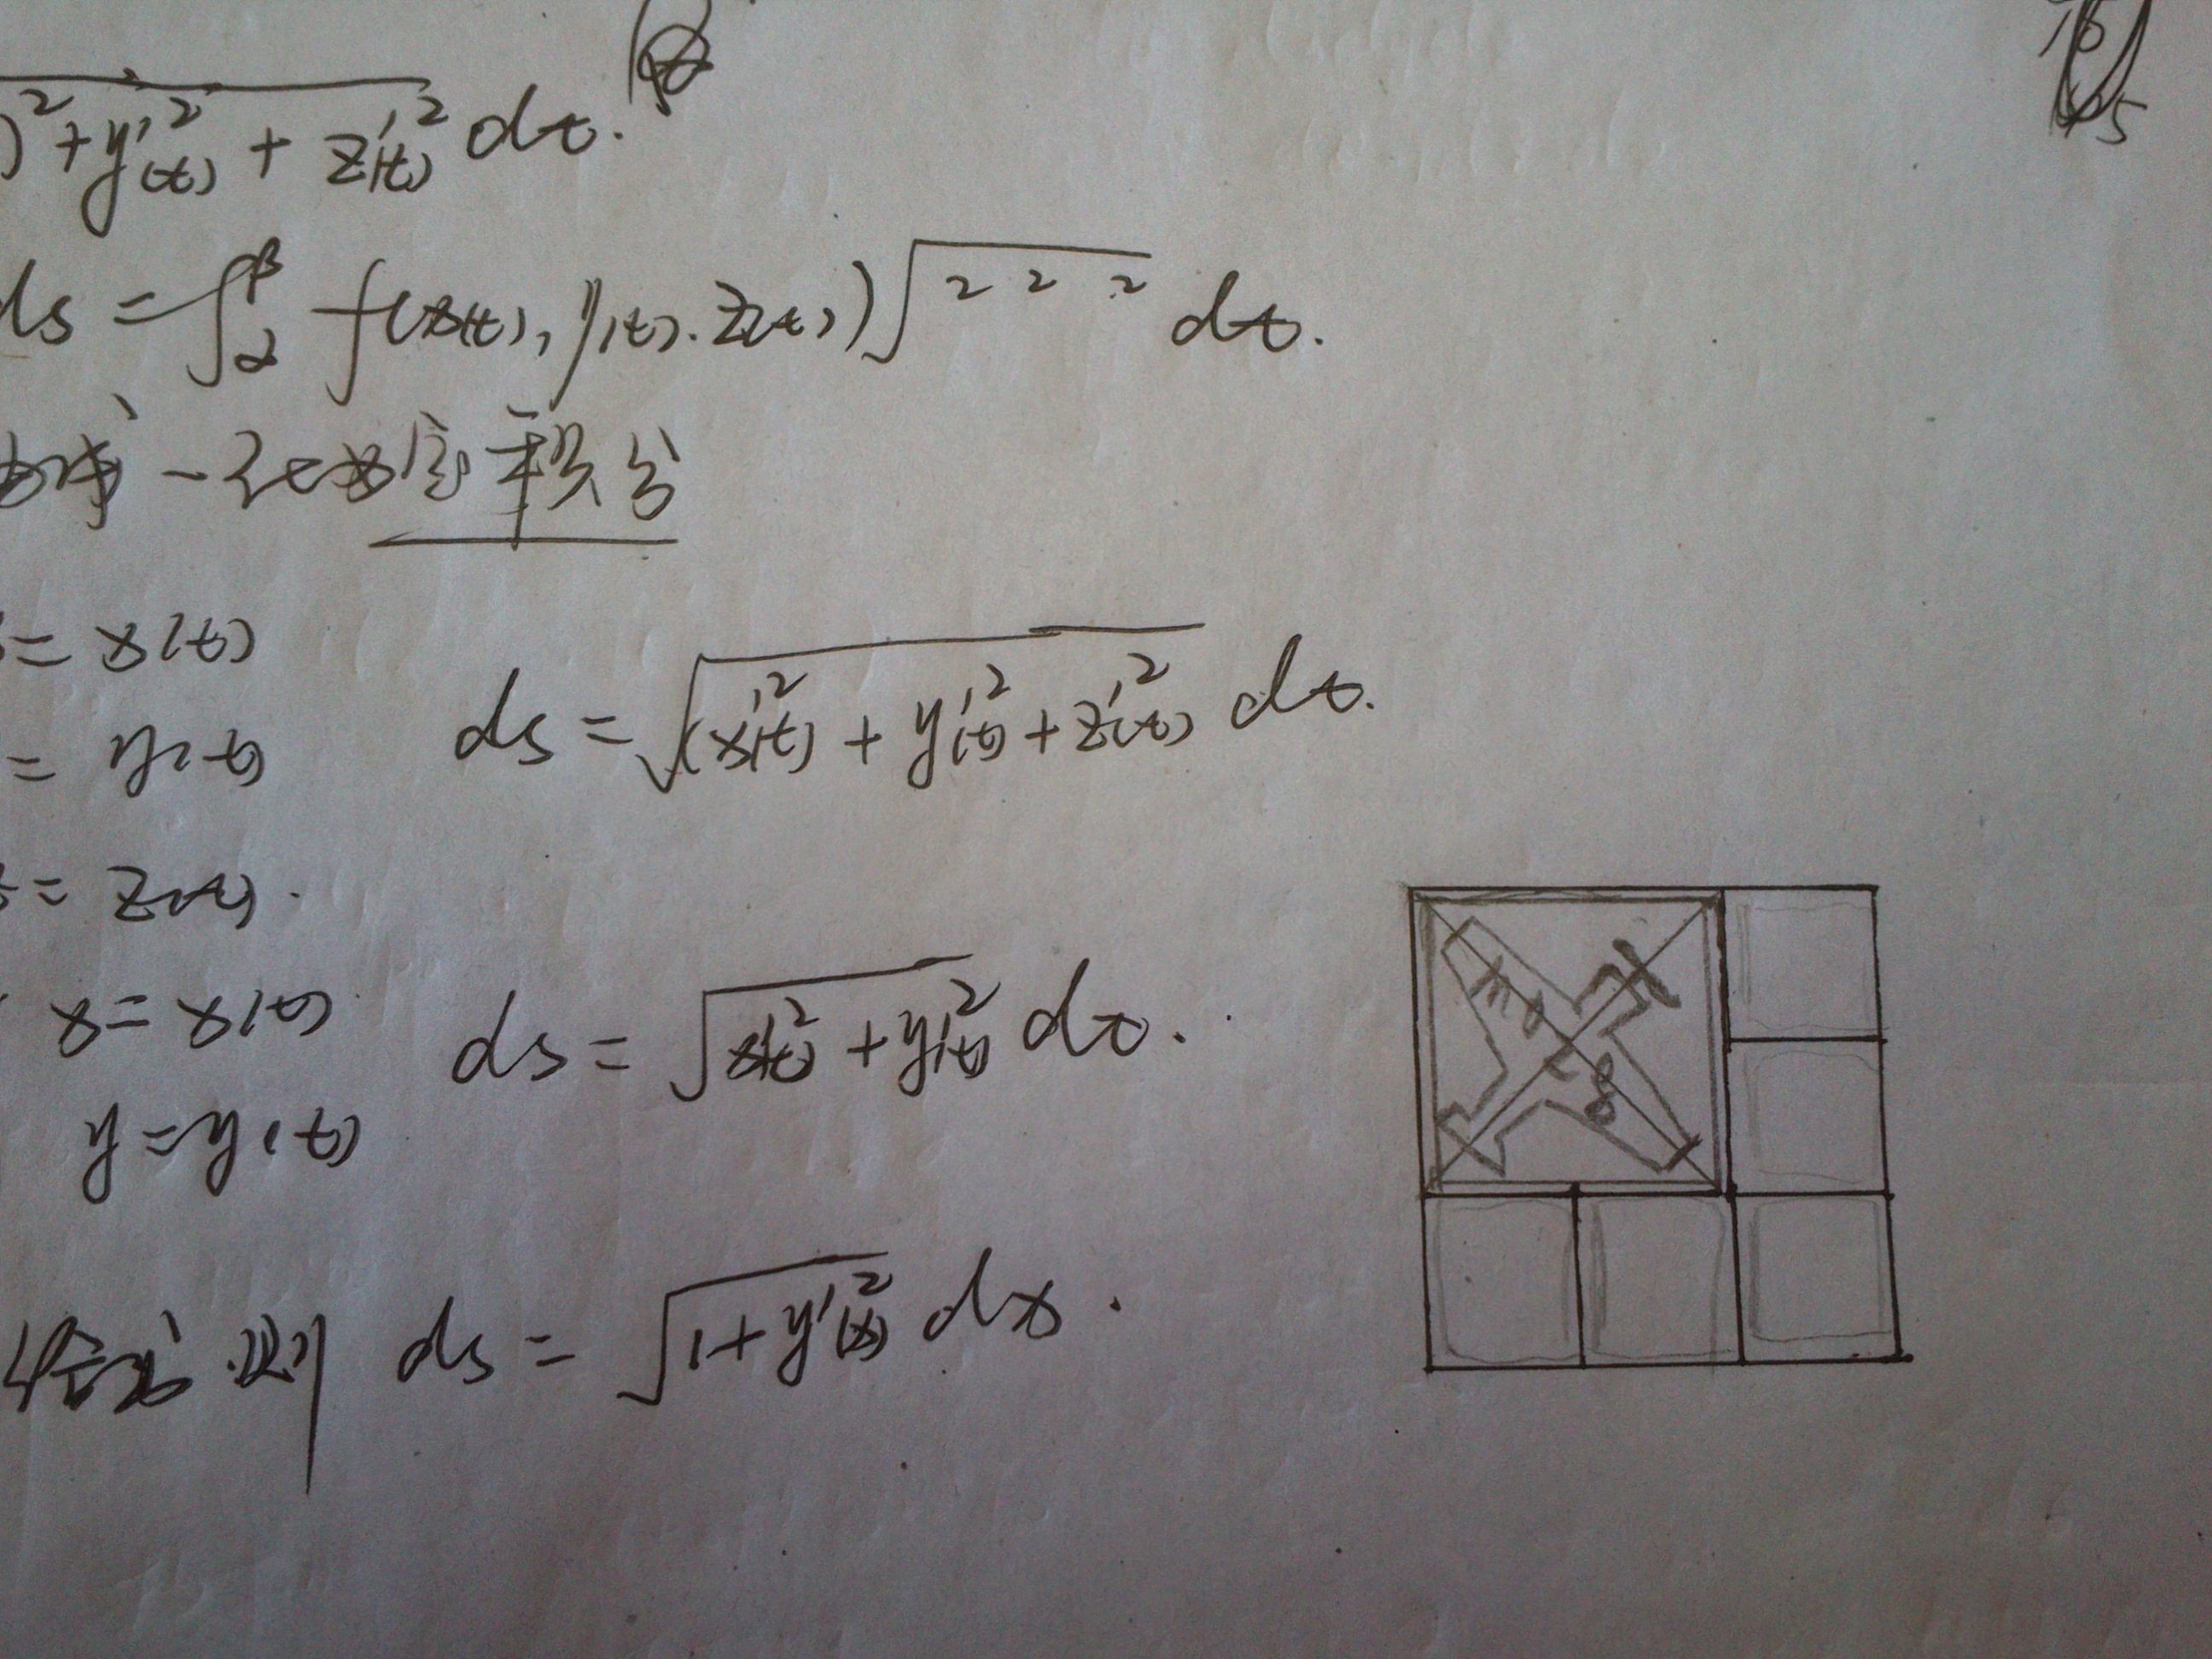 )²+y'²(t) + z'²(t) dt.
ds = ∫_α^β f(x(t), y(t). z(t))√ ² ² ² dt.
积分
= x(t)
= y(t)
= z(t).
ds = √(x'²(t) + y'²(t) + z'²(t) dt.
x = x(t)
ds = √x'²(t) + y'²(t) dt.
y = y(t)
则 ds = √1+y'²(x) dx.